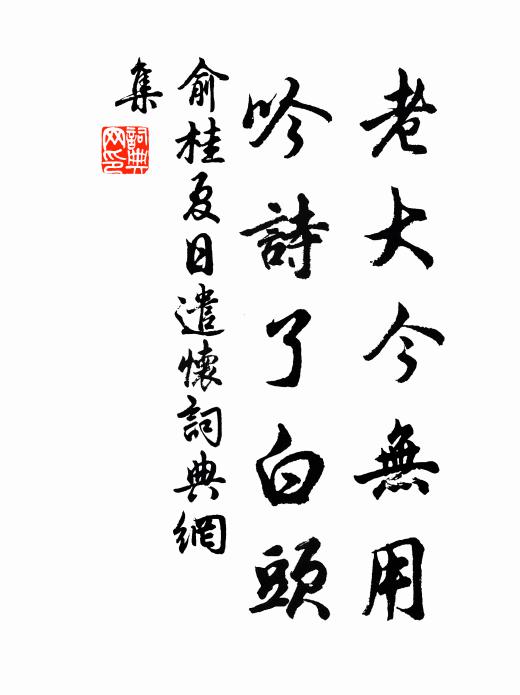 老大今無用
吟詩了白頭
俞桂夏日遣懷詞典網
集
詞典
网印